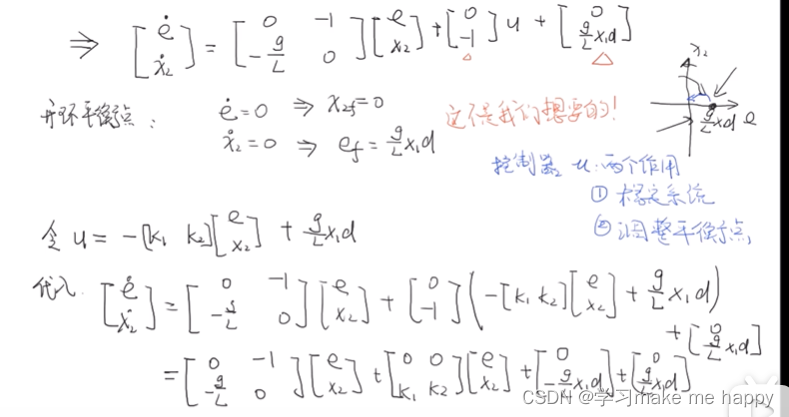 ⇒ [ė ẋ₂] = [0 -1 -g/L 0][e x₂] + [0 -1] u + [0 g/L x₁d]
x₂
开环平衡点: ė=0 ⇒ x₂f=0 这不是我们想要的!
ẋ₂=0 ⇒ ef = g/L x₁d
g/L x₁d e
控制器 u: 两个作用
① 稳定系统
② 调整平衡点
令 u = -[k₁ k₂][e x₂] + g/L x₁d
代入 [ė ẋ₂] = [0 -1 -g/L 0][e x₂] + [0 -1](-[k₁ k₂][e x₂] + g/L x₁d) + [0 g/L x₁d]
= [0 -1 -g/L 0][e x₂] + [0 0 k₁ k₂][e x₂] + [0 -g/L x₁d] + [0 g/L x₁d]
CSDN @学习make me happy